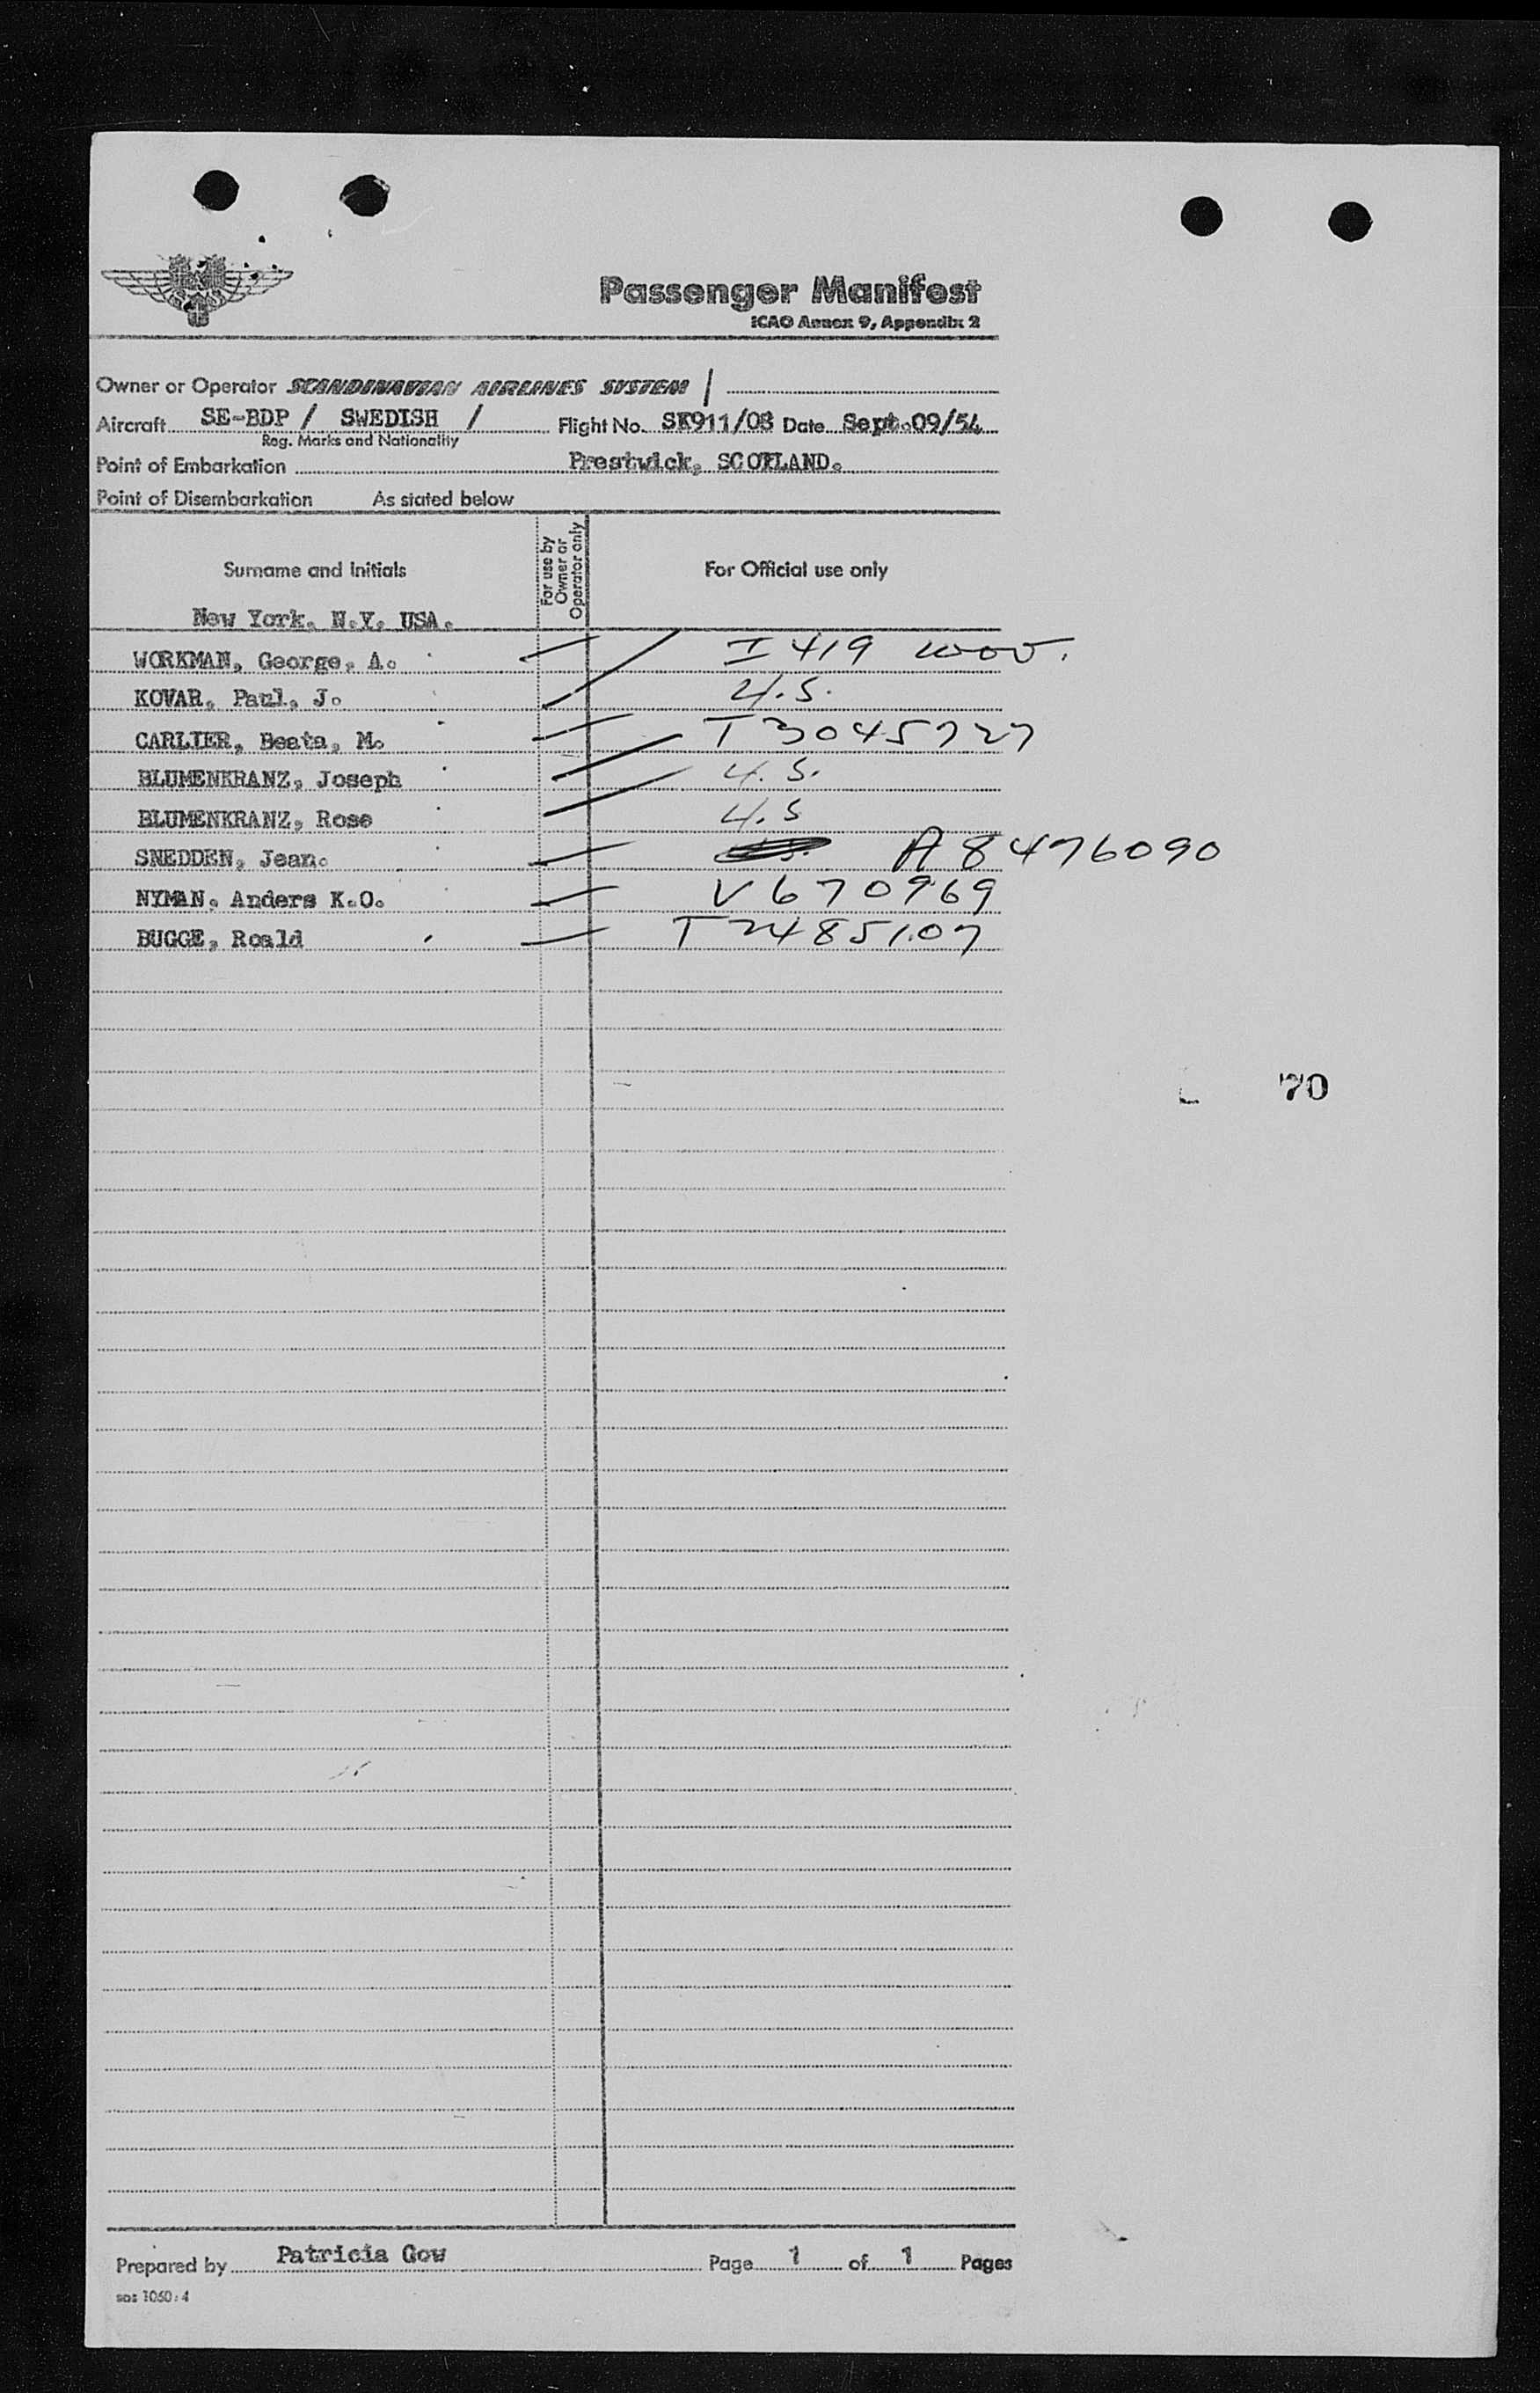 Passenger Manifest
ICAO Annex 9, Appendix 2
Owner or Operator SCANDINAVIAN AIRLINES SYSTEM /
Aircraft SE-BDP / SWEDISH / Flight No. SK911/08 Date Sept.09/54
Reg. Marks and Nationality
Point of Embarkation Prestwick, SCOTLAND.
Point of Disembarkation As stated below
Surname and Initials
For use by Owner or Operator only
For Official use only
New York. N.Y. USA.
WORKMAN, George, A. I 419
KOVAR, Paul, J. U.S.
CARLIER, Beata, M. T 3045727
BLUMENKRANZ, Joseph U.S.
BLUMENKRANZ, Rose U.S
SNEDDEN, Jean. A 8476090
NYMAN. Anders K.O. V 670969
BUGGE, Roald T 2485107
70
Prepared by Patricia Gow Page 1 of 1 Pages
sas 1060:4